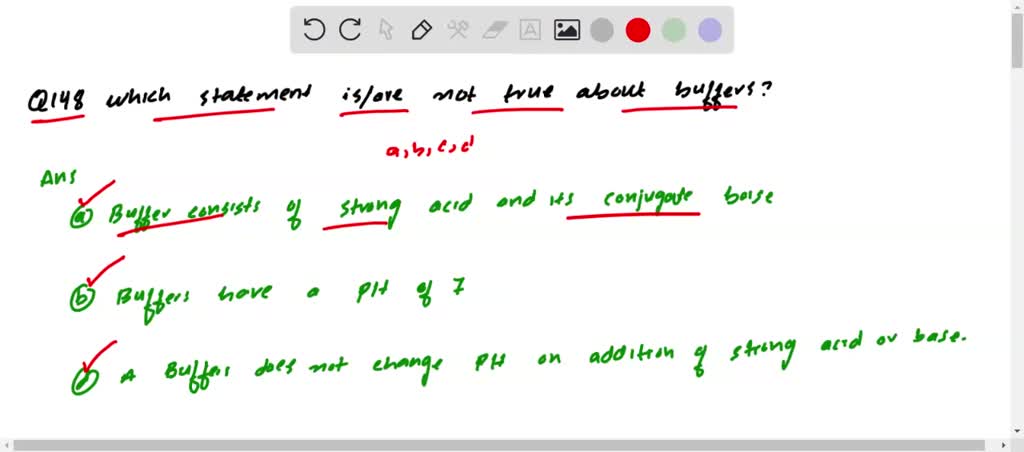 Q148 which statement is/are not true about buffers?
a, b, c, d
Ans
a Buffer consists of strong acid and its conjugate base
b Buffers have a PH of 7
A Buffers does not change PH on addition of strong acid or base.